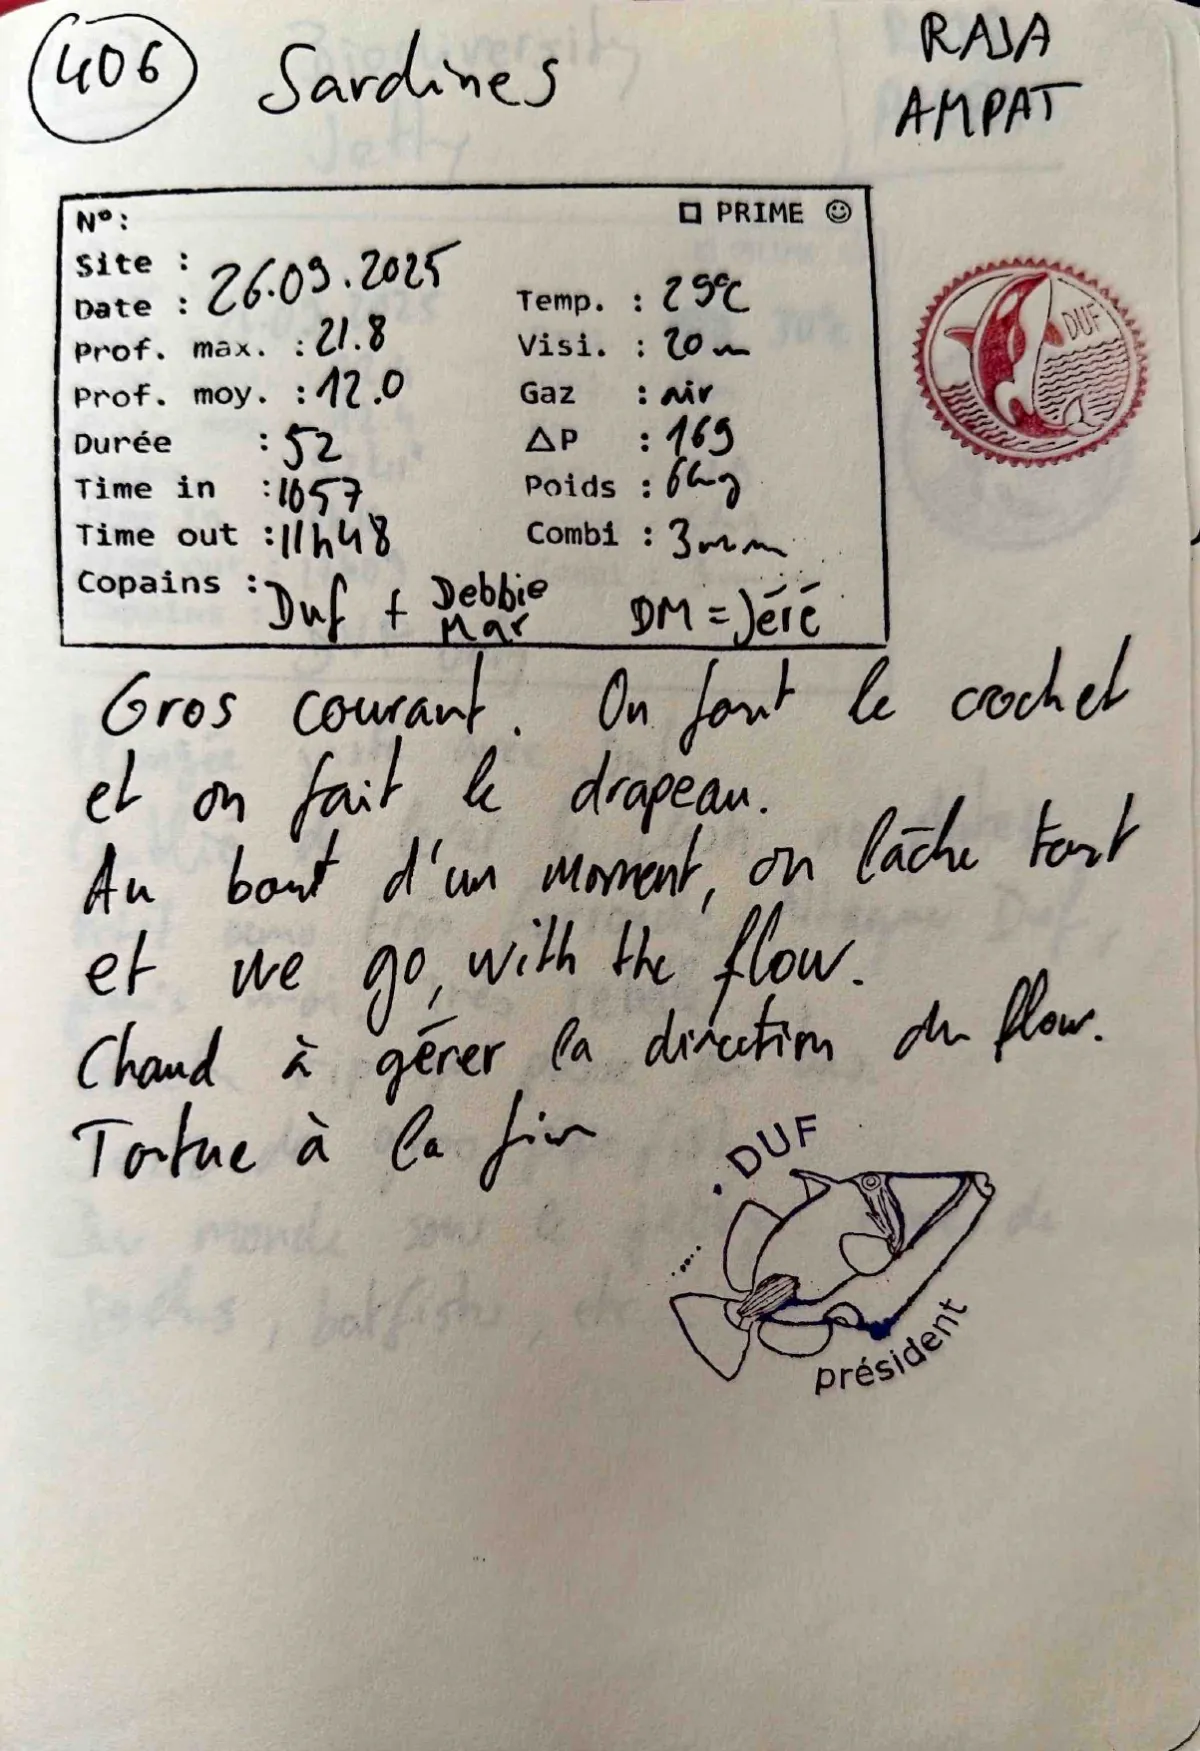 406 Sardines
RAJA
AMPAT
N°:
□ PRIME ☺
Site :
Date : 26.09.2025
Prof. max. : 21.8
Prof. moy. : 12.0
Durée : 52
Time in : 1057
Time out : 11h48
Temp. : 29°C
Visi. : 20m
Gaz : air
ΔP : 169
Poids : 6kg
Combi : 3mm
Copains : Duf + Debbie
Mar
DM = Jéré
DUF
Gros courant. On sort le crochet
et on fait le drapeau.
Au bout d'un moment, on lâche tout
et we go, with the flow.
Chaud à gérer la direction du flow.
Tortue à la fin
DUF
président